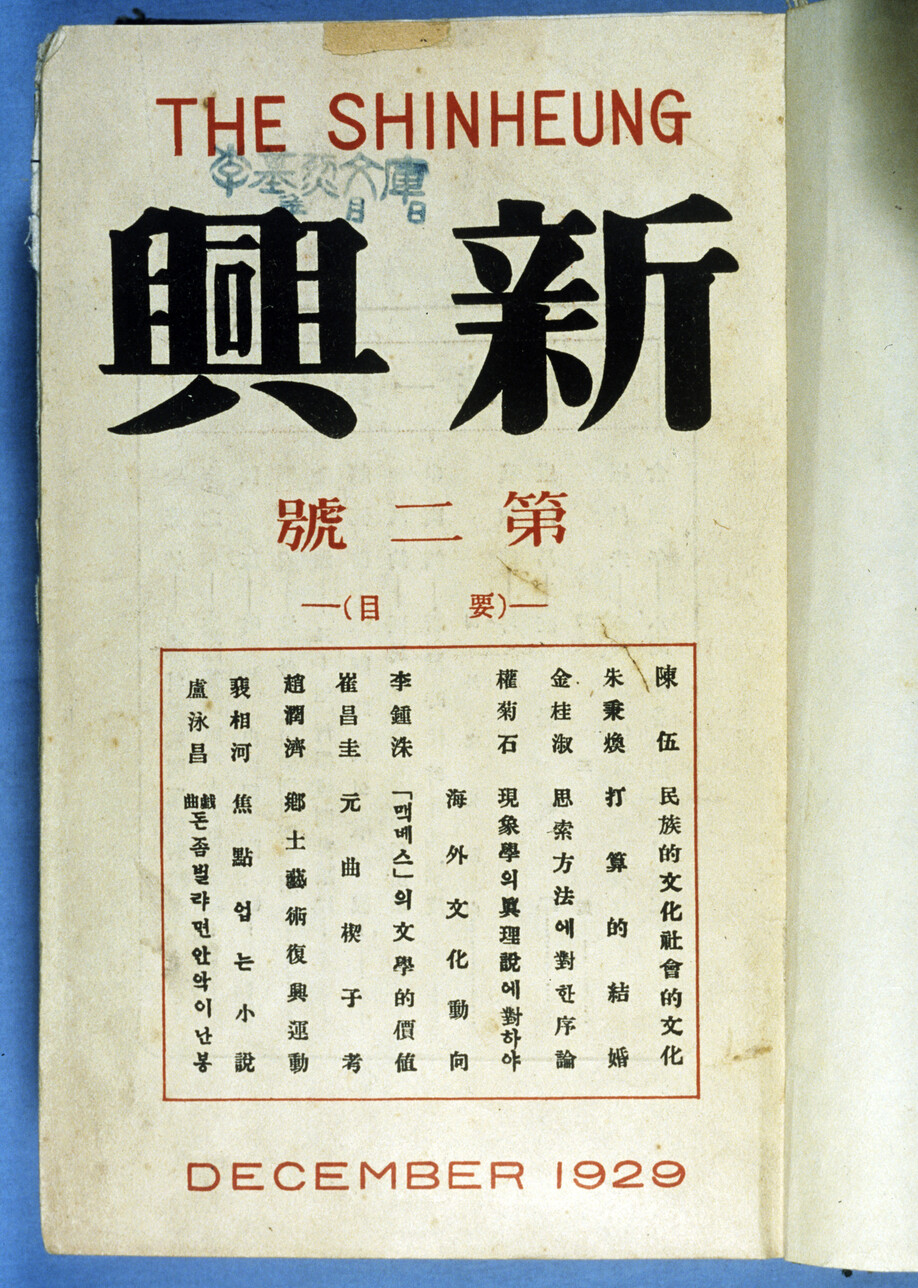 THE SHINHEUNG
新興
第二號
―(要目)―
陳伍 民族的文化社會的文化
朱秉煥 打算的結婚
金桂淑 思索方法에對한序論
權菊石 現象學의眞理說에對하야
海外文化動向
李鍾洙 「맥베스」의文學的價値
崔昌圭 元曲楔子考
趙潤濟 鄕土藝術復興運動
裵相河 焦點업는小說
盧泳昌 戱曲 돈좀벌랴면안악이난봉
DECEMBER 1929